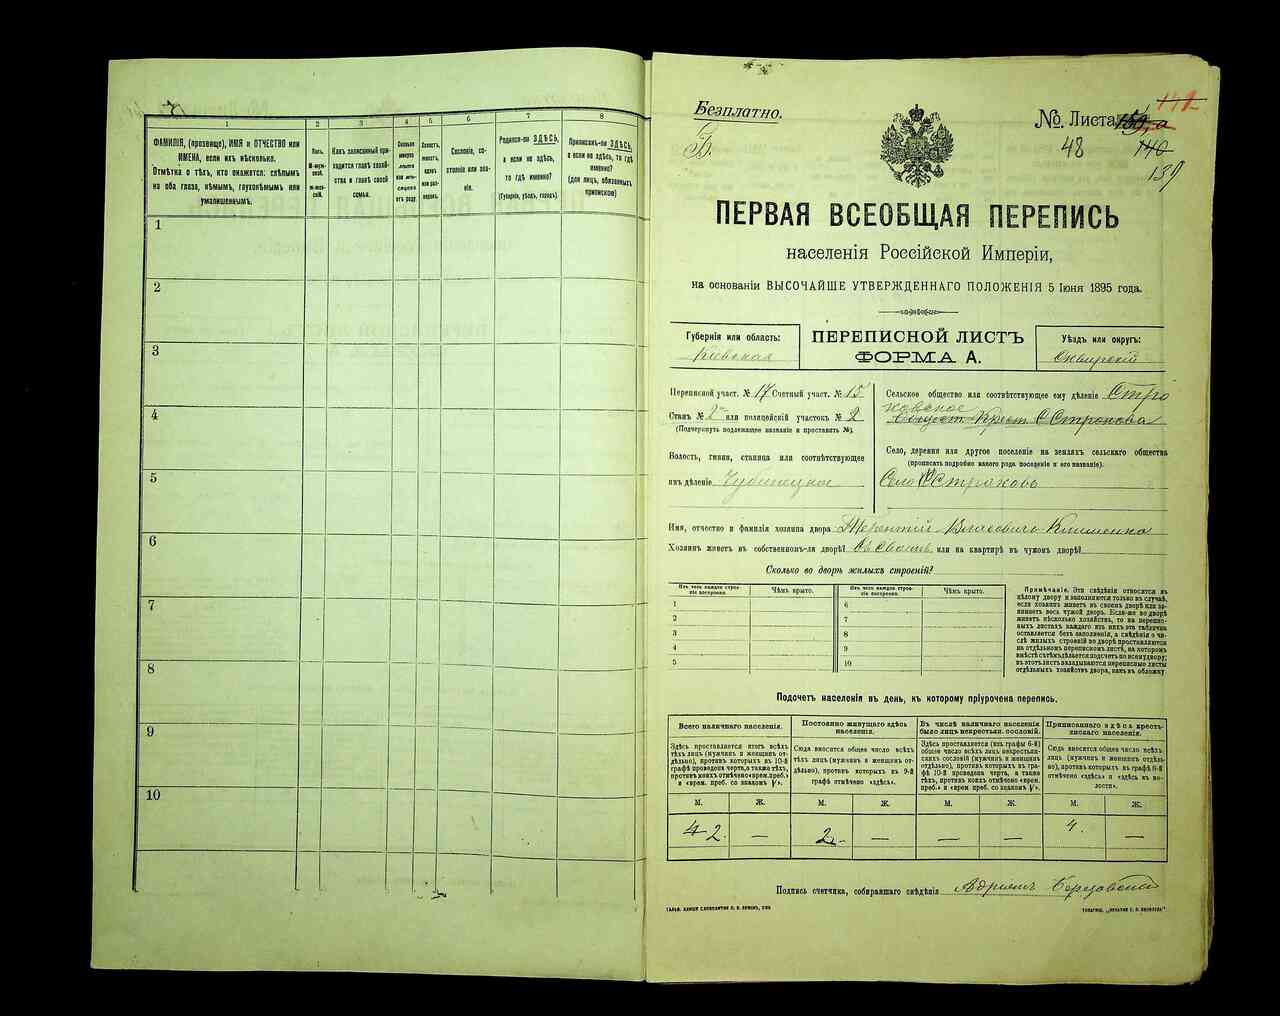 1
2
3
4
5
6
7
8
ФАМИЛІЯ, (прозвище), ИМЯ и ОТЧЕСТВО или
ИМЕНА, если ихъ нѣсколько.
Отмѣтка о тѣхъ, кто окажется: слѣпымъ
на оба глаза, нѣмымъ, глухонѣмымъ или
умалишеннымъ.
Полъ.
М-мужской.
Ж-женскій.
Какъ записанный приходится
главѣ хозяйства и главѣ своей
семьи.
Сколько
минуло
лѣтъ
или мѣсяцевъ
отъ роду.
Сословіе, состояніе
или званіе.
Родился-ли ЗДѢСЬ,
а если не здѣсь,
то гдѣ именно?
(Губернія, уѣздъ, городъ).
Приписанъ-ли ЗДѢСЬ,
а если не здѣсь, то гдѣ
именно?
(для лицъ, обязанныхъ
припискою)
1
2
3
4
5
6
7
8
9
10
Безплатно.
№ Листа
48
140
139
ПЕРВАЯ ВСЕОБЩАЯ ПЕРЕПИСЬ
населенія Россійской Имперіи,
на основаніи ВЫСОЧАЙШЕ УТВЕРЖДЕННАГО ПОЛОЖЕНІЯ 5 Іюня 1895 года.
Губернія или область:
Кіевская
ПЕРЕПИСНОЙ ЛИСТЪ
ФОРМА А.
Уѣздъ или округъ:
Сквирскій
Переписной участ. № 17 Счетный участ. № 15
Станъ № 2 или полицейскій участокъ № 2
(Подчеркнуть подлежащее названіе и проставить №).
Волость, гмина, станица или соотвѣтствующее
имъ дѣленіе Чубинецкое
Сельское общество или соотвѣтствующее ему дѣленіе Стро
ковское
Крест С Строкова
Село, деревня или другое поселеніе на земляхъ сельскаго общества
(прописать подробно какого рода поселеніе и его названіе).
Село Строкова
Имя, отчество и фамилія хозяина двора Терентій Власовичъ Клименко
Хозяинъ живетъ въ собственномъ-ли дворѣ? или на квартирѣ въ чужомъ дворѣ?
Сколько во дворѣ жилыхъ строеній?
Изъ чего каждое строеніе
построено.
Чѣмъ крыто.
Изъ чего каждое строеніе
построено.
Чѣмъ крыто.
1
2
3
4
5
6
7
8
9
10
Примѣчаніе. Эти свѣдѣнія относятся къ
цѣлому двору и заполняются только въ случаѣ,
если хозяинъ живетъ въ своемъ дворѣ или занимаетъ
весь чужой дворъ. Если-же во дворѣ
живетъ нѣсколько хозяйствъ, то на переписныхъ
листахъ каждаго изъ нихъ эта табличка
оставляется безъ заполненія, а свѣдѣнія о числѣ
жилыхъ строеній во дворѣ проставляются
на отдѣльномъ переписномъ листѣ, на которомъ
вмѣстѣ съ тѣмъ дѣлается подсчетъ по всему двору;
въ этотъ листъ вкладываются переписные листы
отдѣльныхъ хозяйствъ двора, какъ въ обложку
Подсчетъ населенія въ день, къ которому пріурочена перепись.
Всего наличнаго населенія.
Постоянно живущаго здѣсь
населенія.
Въ числѣ наличнаго населенія
было лицъ некрестьян. сословій.
Приписаннаго здѣсь крестьянскаго
населенія.
Здѣсь проставляется итогъ всѣхъ
тѣхъ лицъ (мужчинъ и женщинъ отдѣльно),
противъ которыхъ въ 10-й
графѣ проведена черта, а также тѣхъ,
противъ коихъ отмѣчено «врем. преб.»
и «врем. преб. со знакомъ V».
Сюда вносится общее число всѣхъ
тѣхъ лицъ (мужчинъ и женщинъ отдѣльно),
противъ которыхъ въ 9-й
графѣ отмѣчено «здѣсь».
Здѣсь проставляется (изъ графы 6-й)
общее число всѣхъ лицъ некрестьянскихъ
сословій (мужчинъ и женщинъ
отдѣльно), противъ которыхъ въ графѣ
10-й проведена черта, а также
тѣхъ, противъ коихъ отмѣчено «врем.
преб.» и «врем. преб. со знакомъ V».
Сюда вносится общее число всѣхъ
лицъ (мужчинъ и женщинъ отдѣльно),
противъ которыхъ въ графѣ 8-й
отмѣчено «здѣсь» и «здѣсь въ волости».
М. Ж. М. Ж. М. Ж. М. Ж.
4 2 — 2 — — — 4. —
Подпись счетчика, собиравшаго свѣдѣнія